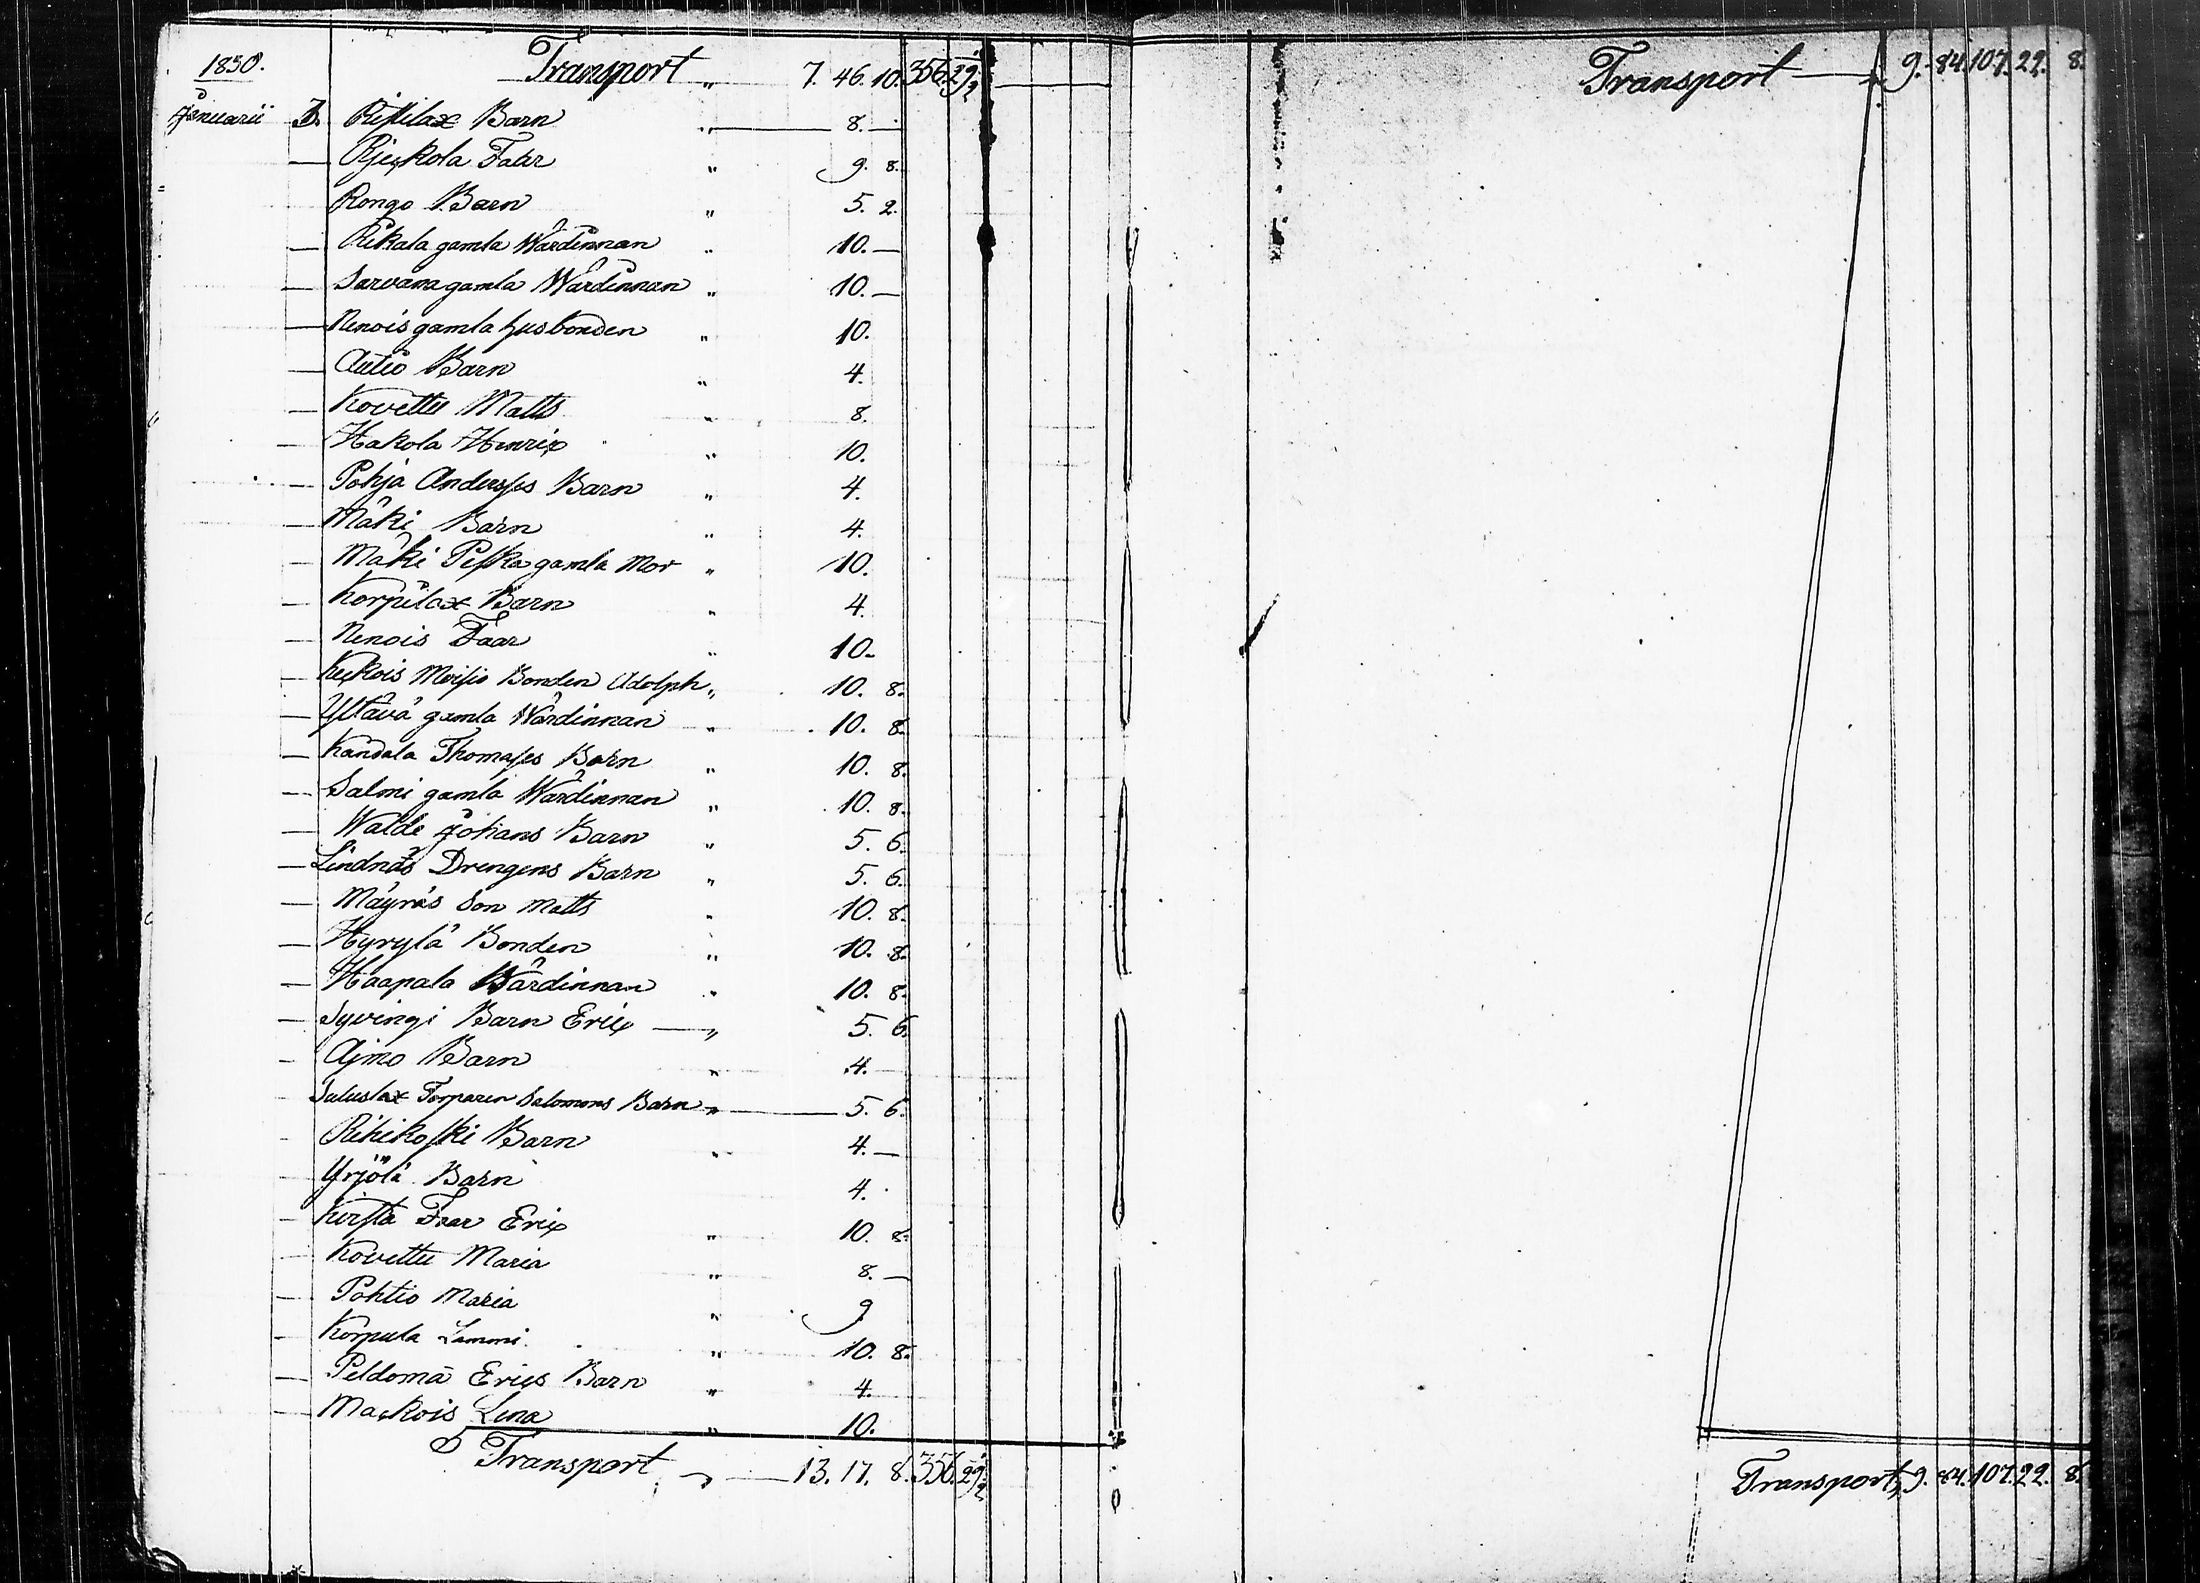 1830. Transport „ 7. 46. 10. 356. 29 1/2
Januarii 3. Ristilax Barn „ 8. —
— Rjeskola Faar „ 9. 8.
Rongo Barn „ 5. 2.
— Rikala gamla Wärdinnan „ 10. —
— Sarvana gamla Wärdinnan „ 10. —
— Nenois gamla husbonden „ 10.
— Autio Barn „ 4.
— Kovettu Matts „ 8.
— Hakola Henrix „ 10.
— Pohja Anderssos Barn „ 4.
— Mäki Barn „ 4.
— Mäki Piska gamla Mor „ 10.
— Korpilax Barn „ 4.
— Nenois Faar „ 10-
— Keskois Moisio Bonden Adolph „ 10. 8.
— Yltävä gamla Wärdinnan „ 10. 8.
— Kandala Thomasses Barn „ 10. 8.
— Salmi gamla Wärdinnan „ 10. 8.
— Walde Johans Barn „ 5. 6.
— Lindnäs Drengens Barn „ 5. 6.
— Mäyräs Son Matts „ 10. 8.
— Hyrylä Bonden „ 10. 8.
— Haapala Wärdinnan „ 10. 8.
— Syvingi Barn Erix — „ 5. 6.
— Ajmo Barn „ 4.
Torparen Salomons Barn „ — 5. 6.
Rihikoski Barn „ 4. —
Yrjölä Barn 4.
— Faar Erix „ 10. 8.
— Kovettu Maria „ 8. —
— Pohtio Maria „ 9
— Korpula Lammi. „ 10. 8.
— Peldomä Erics Barn „ 4.
— Mackois Lena „ 10.
Transport „ — 13. 17. 8. 356. 29 1/2
Transport — 9. 84. 107. 22. 8.
Transport, 9. 84. 107. 22. 8.